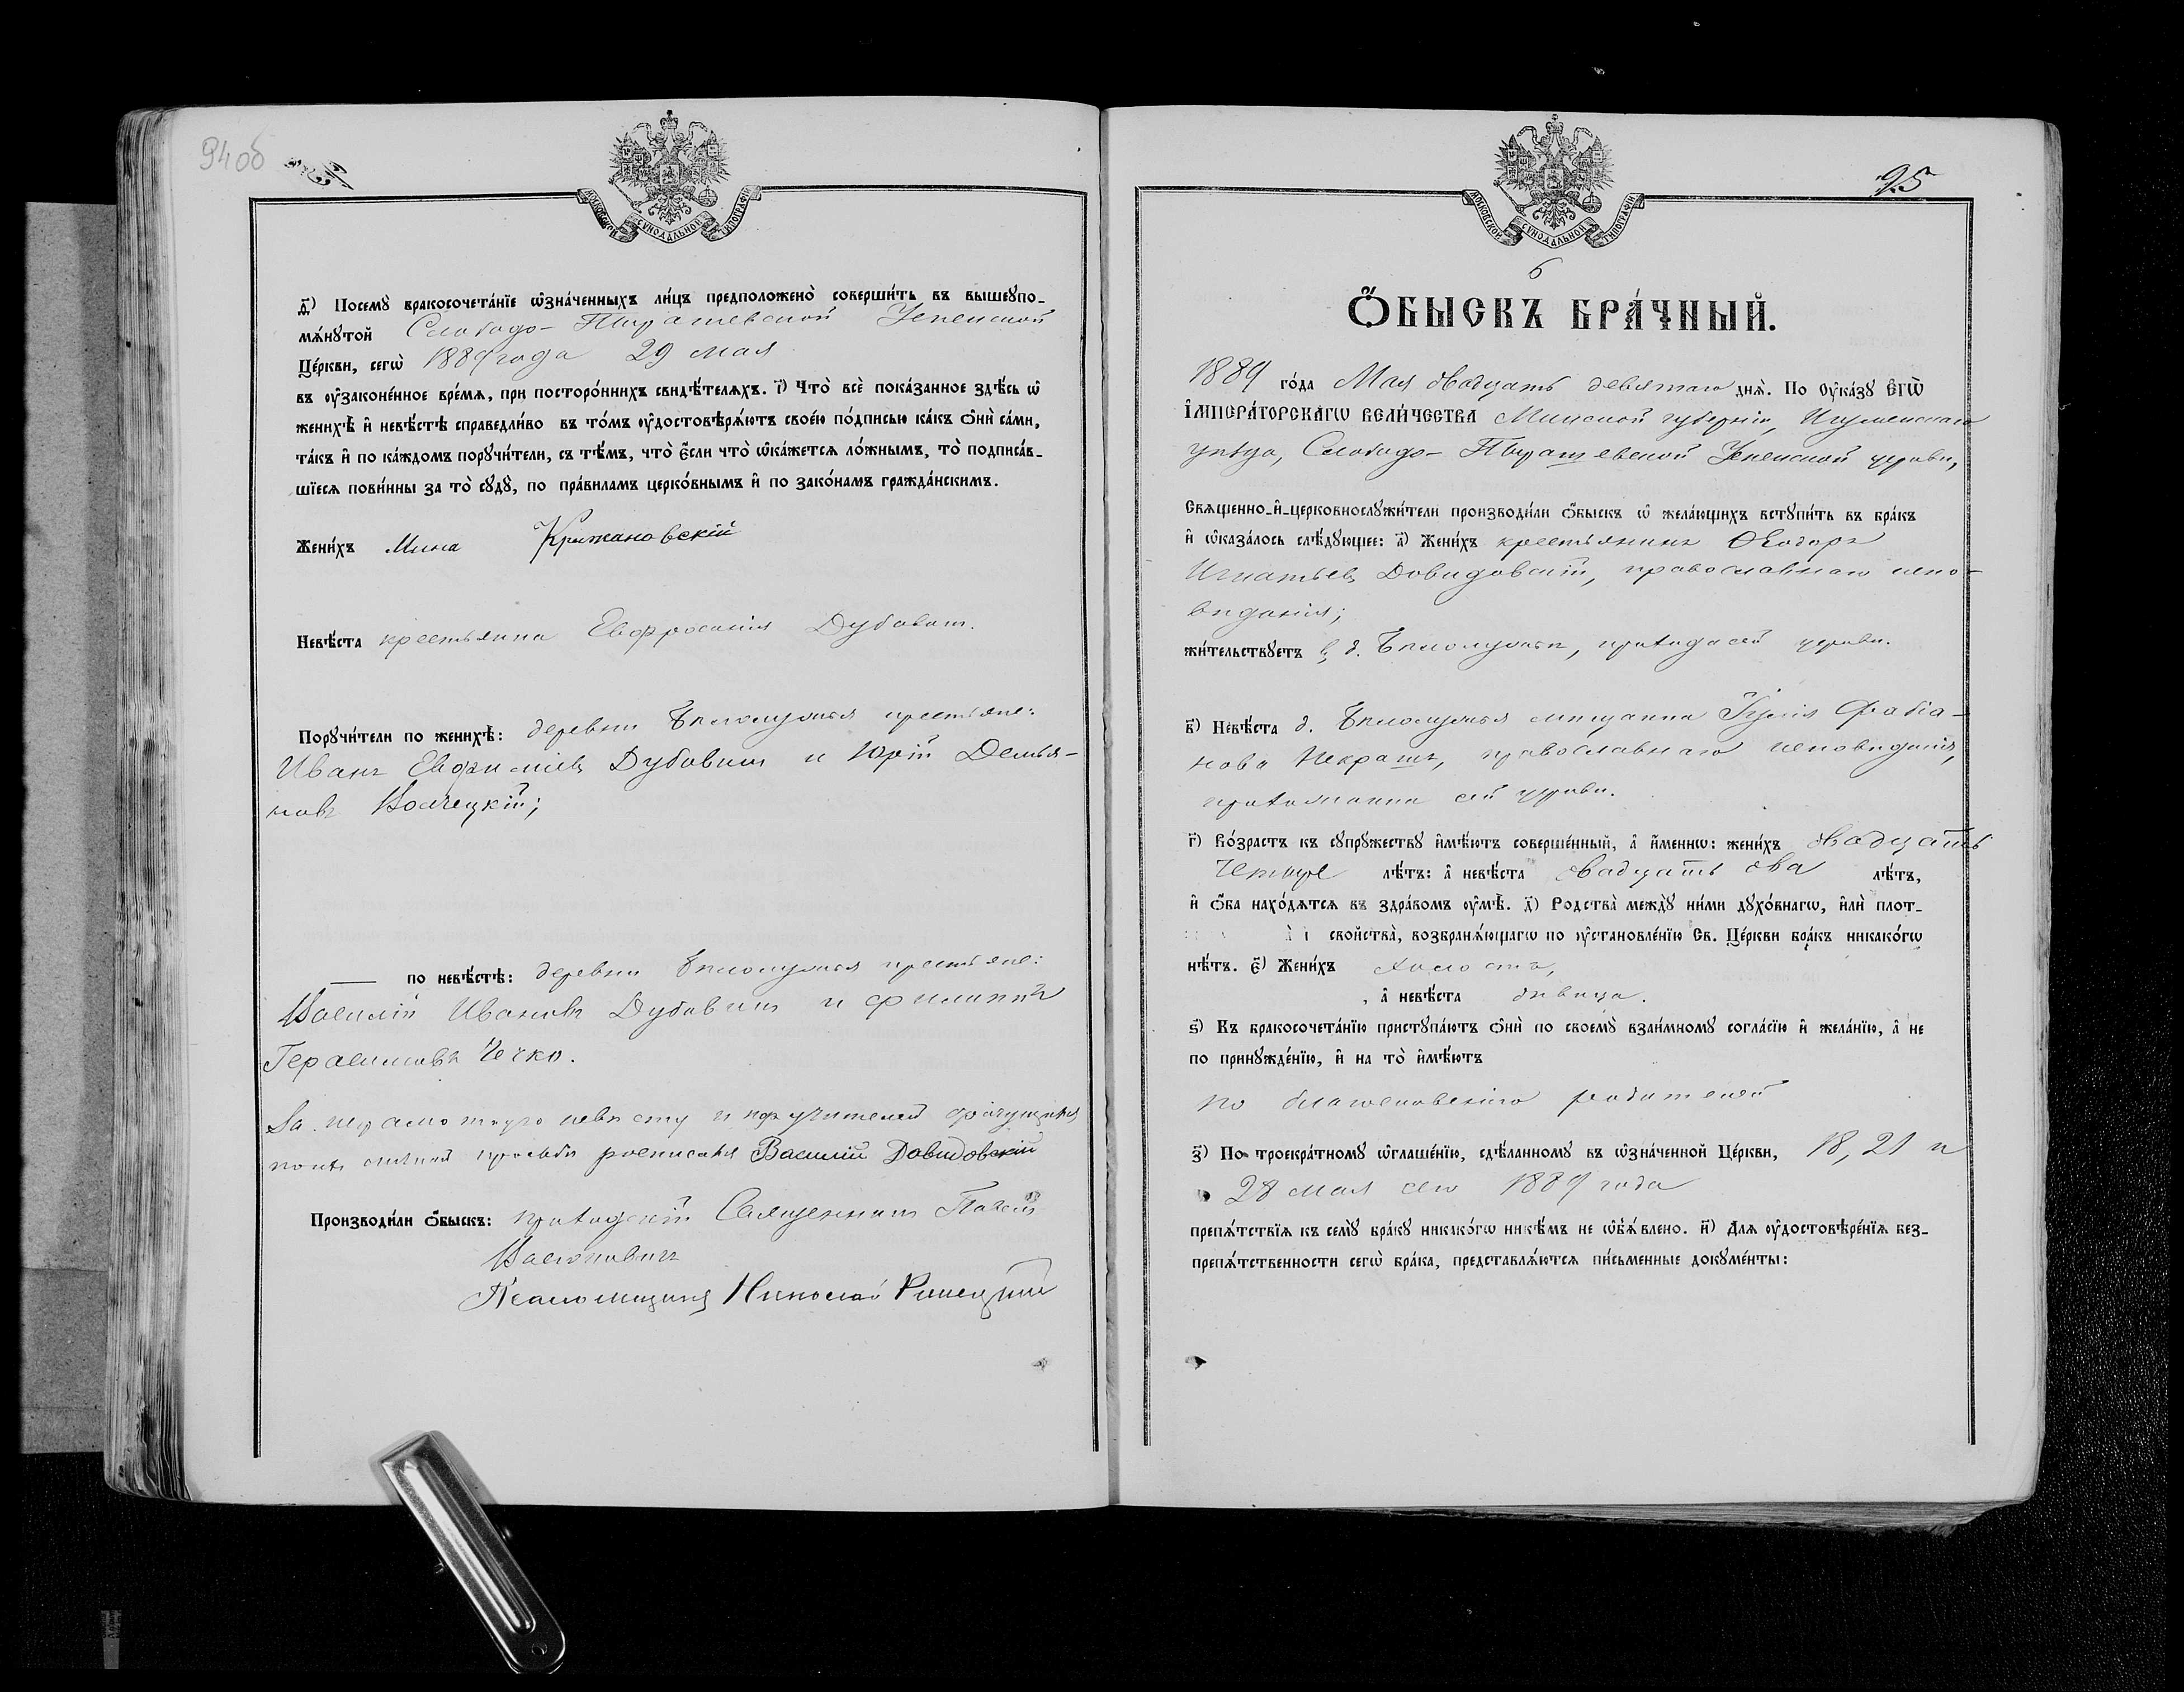 94об
МОСКОВСКОЙ СѴНОДАЛЬНОЙ ТИПОГРАФІИ
д҃) Посемꙋ̀ бракосочета́нїе ѡ҆зна́ченныхъ ли́цъ предположено̀ соверши́ть въ вышеꙋпо-
мѧ́нꙋтой Слободо-Пырашевской Успенской
Це́ркви, сегѡ̀ 1889 года 29 мая
въ ᲂу҆законе́нное вре́мѧ, при посторо́ннихъ свидѣ́телѧхъ. і҃) Что̀ всѐ пока́занное здѣ́сь ѡ҆
женихѣ̀ и҆ невѣ́стѣ справедли́во въ то́мъ ᲂу҆достовѣрѧ́ютъ свое́ю по́дписью ка́къ ѻ҆нѝ са́ми,
та́къ и҆ по ка́ждомъ порꙋчи́тели, съ тѣ́мъ, что̀ є҆́сли что̀ ѡ҆ка́жетсѧ ло́жнымъ, то̀ подписа́в-
шїесѧ пови́нны за то̀ сꙋдꙋ̀, по пра́виламъ церко́внымъ и҆ по зако́намъ гражда́нскимъ.
Жени́хъ Мина Крижановскій
Невѣ́ста крестьянка Евфросинія Дубовик.
Порꙋчи́тели по женихѣ̀: деревни крестьяне:
Иванъ Дубовик и Юрій Демья-
новъ
по невѣ́стѣ: деревни крестьяне:
Василій Ивановъ Дубовик и Филиппъ
Герасимовъ Чечко.
За неграмотную невѣсту и поручителей
по их личной просьбѣ росписался Василій Довидовскій
Производи́ли ѻ҆́быскъ: приходскій Священник
Псаломщикъ Николай
95
МОСКОВСКОЙ СѴНОДАЛЬНОЙ ТИПОГРАФІИ
6
Ѻ҆́БЫСКЪ БРА́ЧНЫЙ.
1889 го́да Мая двадцать девятаго днѧ̀. По ᲂу҆ка́зꙋ Є҆ГѠ̀
І҆МПЕРА́ТОРСКАГѠ ВЕЛИ́ЧЕСТВА Минской губерніи, Игуменскаго
уѣзда, Слободо-Пырашевской Успенской церкви,
Свѧщенно-и҆-церковнослꙋжи́тели производи́ли ѻ҆́быскъ ѡ҆ жела́ющихъ встꙋпи́ть въ бра́къ
и҆ ѡ҆каза́лось слѣ́дꙋющее: а҃) Жени́хъ крестьянинъ Ѳеодоръ
Игнатьевъ Довидовскій, православнаго испо-
вѣданія;
жи́тельствꙋетъ въ д. прихода сей церкви.
в҃) Невѣ́ста д. мѣщанка Юлія Фабіа-
нова Некрашъ, православнаго исповѣданія,
прихожанка сей церкви.
г҃) Во́зрастъ къ сꙋпрꙋ́жествꙋ и҆мѣ́ютъ соверше́нный, а҆ и҆́меннѡ: жени́хъ двадцать
четыре лѣ́тъ: а҆ невѣ́ста двадцать два лѣ́тъ,
и҆ ѻ҆́ба нахо́дѧтсѧ въ здра́вомъ ᲂу҆мѣ̀. д҃) Родства̀ междꙋ̀ ни́ми дꙋхо́внагѡ, и҆лѝ плот-
свойства̀, возбранѧ́ющагѡ по ᲂу҆становле́нїю Св. Це́ркви бра́къ никако́гѡ
нѣ́тъ. є҃) Жени́хъ холостъ,
, а҆ невѣ́ста дѣвица.
ѕ҃) Къ бракосочета́нїю пристꙋпа́ютъ ѻ҆нѝ по своемꙋ̀ взаи́мномꙋ согла́сїю и҆ жела́нїю, а҆ не
по принꙋжде́нїю, и҆ на то̀ и҆мѣ́ютъ
по благословенію родителей
з҃) По троекра́тномꙋ ѡ҆глаше́нїю, сдѣ́ланномꙋ въ ѡ҆зна́ченной Це́ркви, 18, 21 и
28 мая сего 1889 года
препѧ́тствїѧ къ семꙋ̀ бра́кꙋ никако́гѡ никѣ́мъ не ѡ҆б̾ѧ́влено. и҃) Для ᲂу҆достовѣре́нїѧ без-
препѧ́тственности сегѡ̀ бра́ка, представлѧ́ютсѧ пи́сьменные докꙋме́нты: